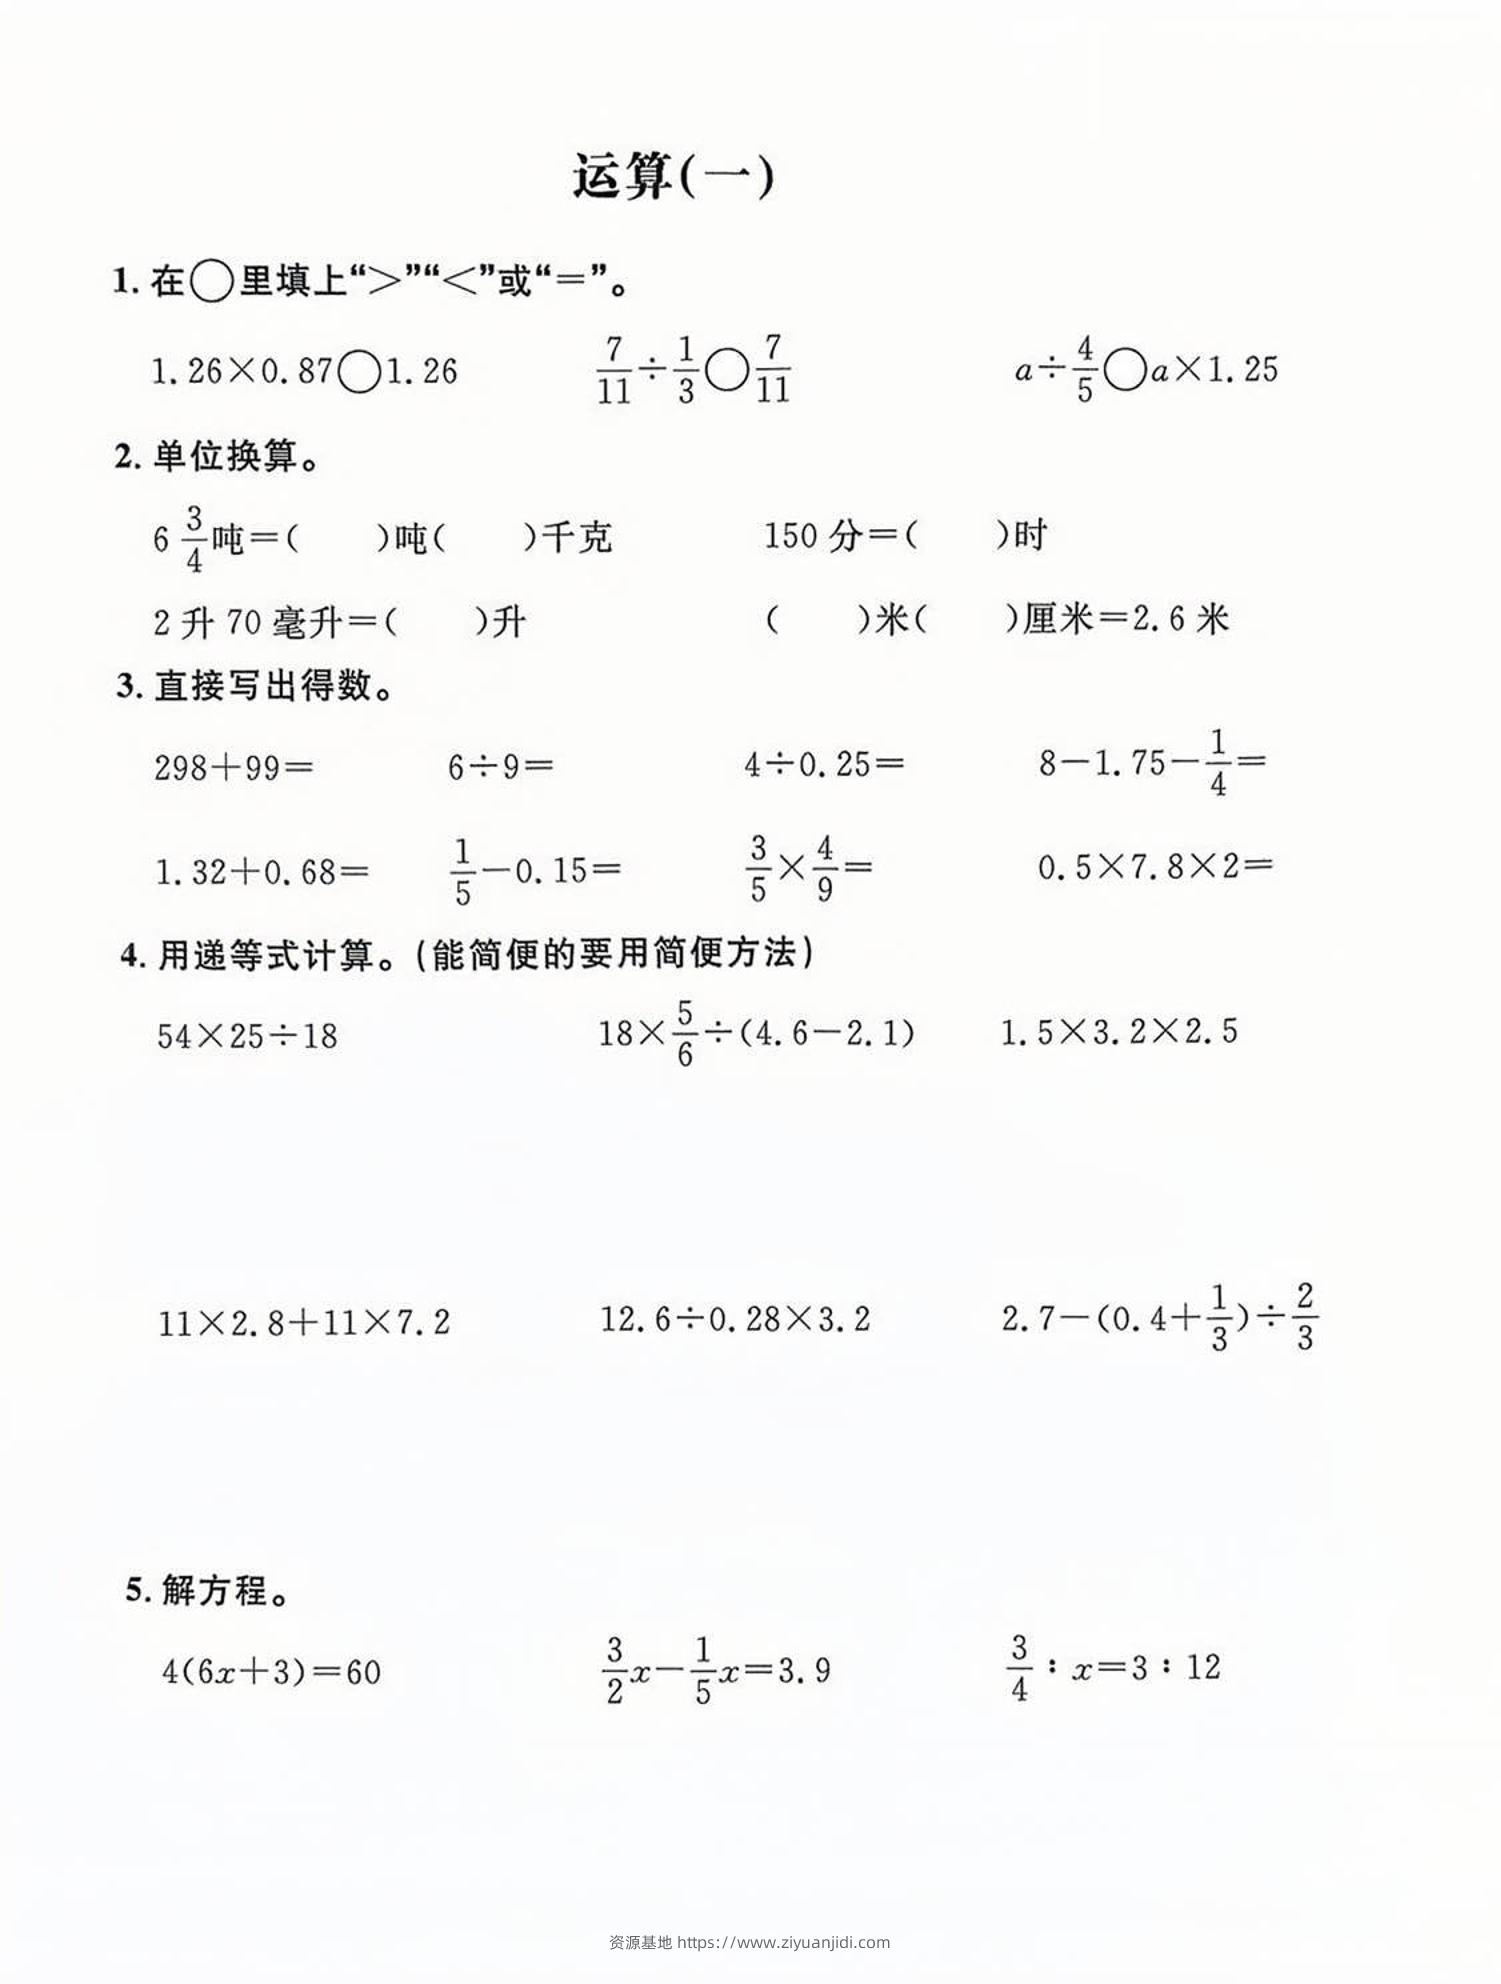 运算(一)
1. 在○里填上“>”“<”或“=”。
1.26×0.87○1.26 7/11÷1/3○7/11 a÷4/5○a×1.25
2. 单位换算。
6 3/4吨=( )吨( )千克 150 分=( )时
2 升 70 毫升=( )升 ( )米( )厘米=2.6 米
3. 直接写出得数。
298+99= 6÷9= 4÷0.25= 8-1.75-1/4=
1.32+0.68= 1/5-0.15= 3/5×4/9= 0.5×7.8×2=
4. 用递等式计算。(能简便的要用简便方法)
54×25÷18 18×5/6÷(4.6-2.1) 1.5×3.2×2.5
11×2.8+11×7.2 12.6÷0.28×3.2 2.7-(0.4+1/3)÷2/3
5. 解方程。
4(6x+3)=60 3/2x-1/5x=3.9 3/4∶x=3∶12
资源基地 https://www.ziyuanjidi.com